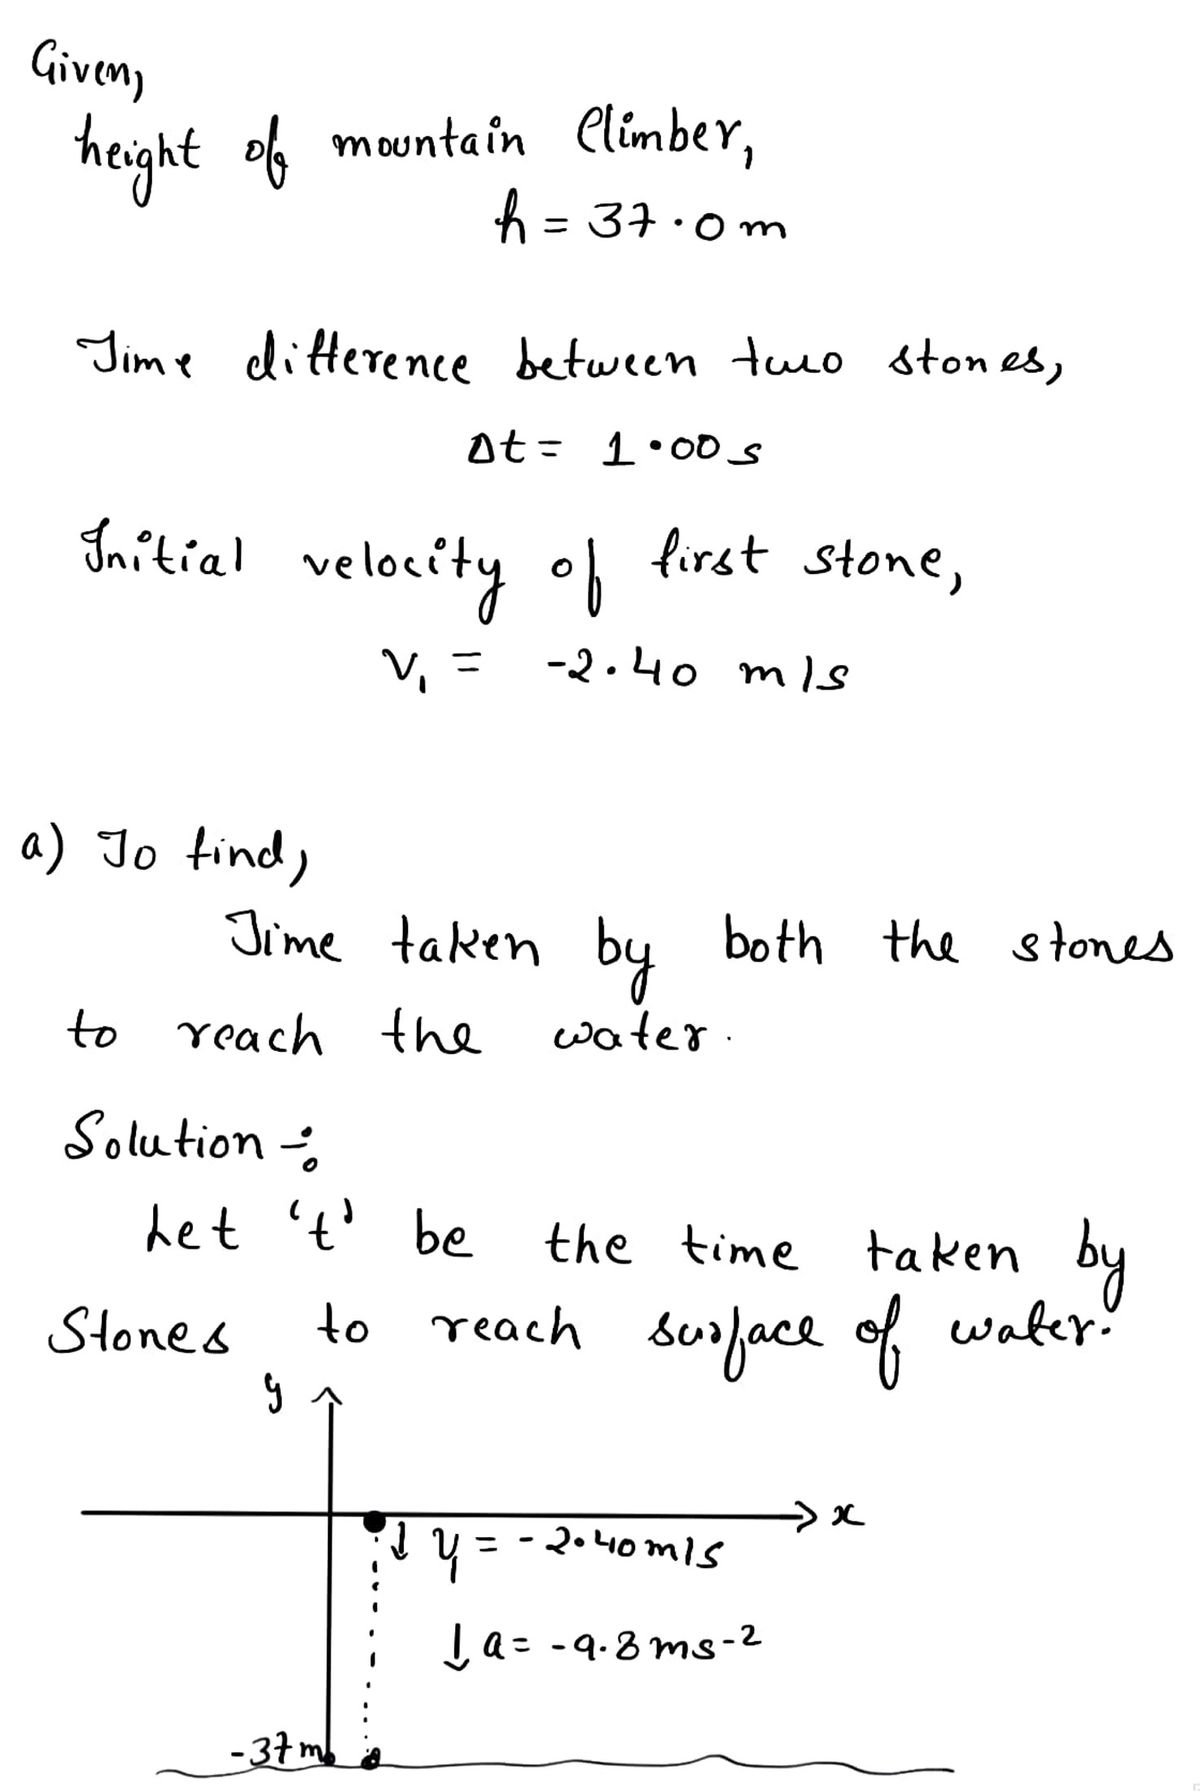 Given,
height of mountain Climber,
h = 37.0 m
Time difference between two stones,
Δt = 1.00 s
Initial velocity of first stone,
V₁ = -2.40 m/s
a) To find,
Time taken by both the stones
to reach the water.
Solution :-
Let 't' be the time taken by
Stones to reach surface of water.
y
x
↓ V₁ = -2.40 m/s
↓ a = -9.8 ms-2
-37 m